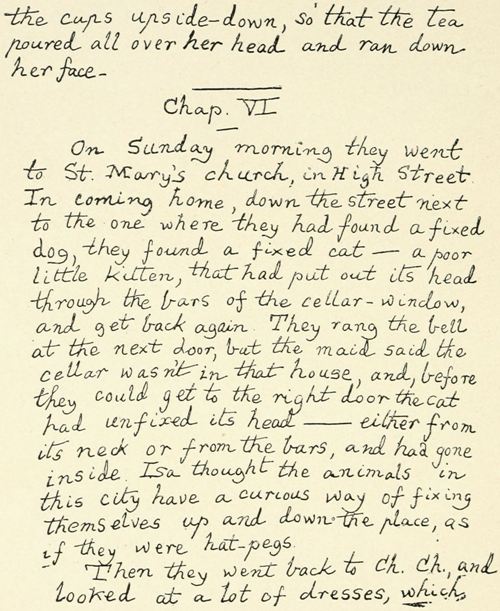 the cups upside-down, so that the tea
poured all over her head and ran down
her face-
Chap. VI
On Sunday morning they went
to St. Mary's church, in High Street.
In coming home, down the street next
to the one where they had found a fixed
dog, they found a fixed cat — a poor
little kitten, that had put out its head
through the bars of the cellar-window,
and get back again. They rang the bell
at the next door, but the maid said the
cellar wasn't in that house, and, before
they could get to the right door the cat
had unfixed its head —— either from
its neck or from the bars, and had gone
inside. Isa thought the animals in
this city have a curious way of fixing
themselves up and down the place, as
if they were hat-pegs.
Then they went back to Ch. Ch., and
looked at a lot of dresses, which